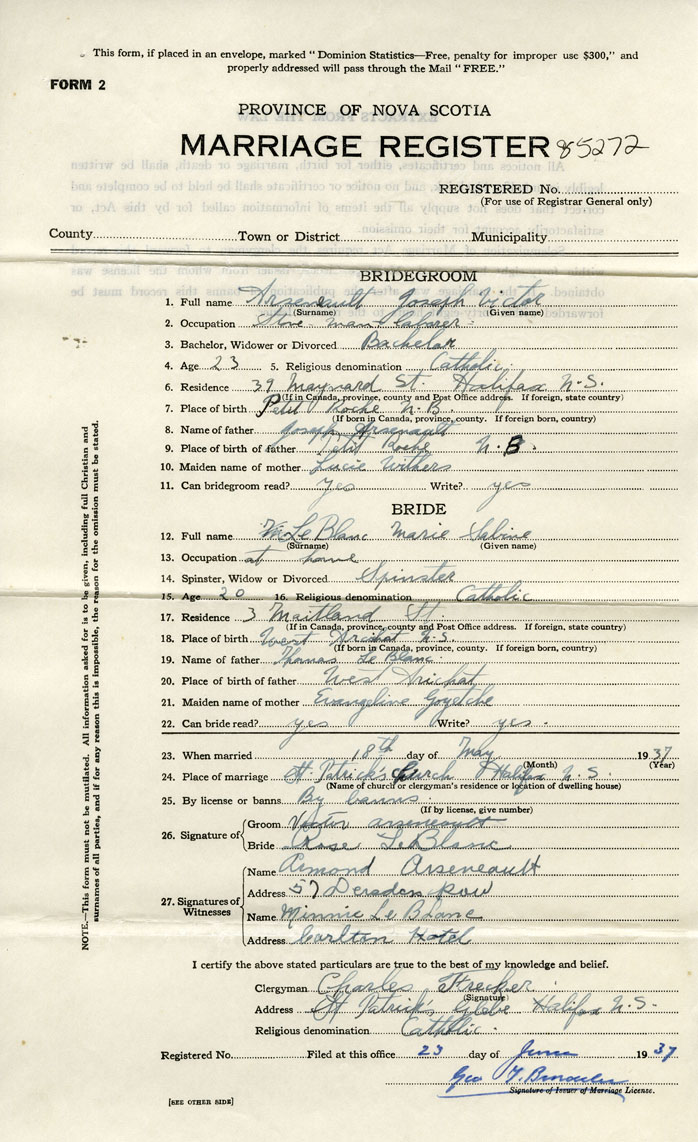 This form, if placed in an envelope, marked "Dominion Statistics—Free, penalty for improper use $300," and
properly addressed will pass through the Mail "FREE."
FORM 2
PROVINCE OF NOVA SCOTIA
MARRIAGE REGISTER 85272
REGISTERED No.
(For use of Registrar General only)
County Town or District Municipality
BRIDEGROOM
1. Full name Arseneault Joseph Victor
(Surname) (Given name)
2. Occupation man laborer
3. Bachelor, Widower or Divorced Bachelor
4. Age 23 5. Religious denomination Catholic
6. Residence 39 Maynard St. Halifax N.S.
(If in Canada, province, county and Post Office address. If foreign, state country)
7. Place of birth Petit Roche N.B.
(If born in Canada, province, county. If foreign born, country)
8. Name of father Joseph Arsenault
9. Place of birth of father Petit Roche N.B
10. Maiden name of mother Lucie Withers
11. Can bridegroom read? yes Write? yes
BRIDE
12. Full name Le Blanc Marie Sabine
(Surname) (Given name)
13. Occupation at home
14. Spinster, Widow or Divorced Spinster
15. Age 20 16. Religious denomination Catholic
17. Residence 3 Maitland St.
(If in Canada, province, county and Post Office address. If foreign, state country)
18. Place of birth West Arichat N.S.
(If born in Canada, province, county. If foreign born, country)
19. Name of father Thomas Le Blanc
20. Place of birth of father West Arichat
21. Maiden name of mother Evangeline Goyetche
22. Can bride read? yes Write? yes
23. When married 18th day of May 1937
(Month) (Year)
24. Place of marriage St. Patrick's Church Halifax N.S.
(Name of church or clergyman's residence or location of dwelling house)
25. By license or banns By banns
(If by license, give number)
26. Signature of
Groom Victor arseneault
Bride Rose LeBlanc
27. Signatures of Witnesses
Name Armond Arseneault
Address 57 Dersden Row
Name Minnie Le Blanc
Address Carlton Hotel
I certify the above stated particulars are true to the best of my knowledge and belief.
Clergyman Charles
(Signature)
Address St Patrick's Glebe Halifax N.S.
Religious denomination Catholic
Registered No. Filed at this office 23 day of June 1937
Geo
Signature of Issuer of Marriage License.
[SEE OTHER SIDE]
NOTE.—This form must not be mutilated. All information asked for is to be given, including full Christian and
surnames of all parties, and if for any reason this is impossible, the reason for the omission must be stated.